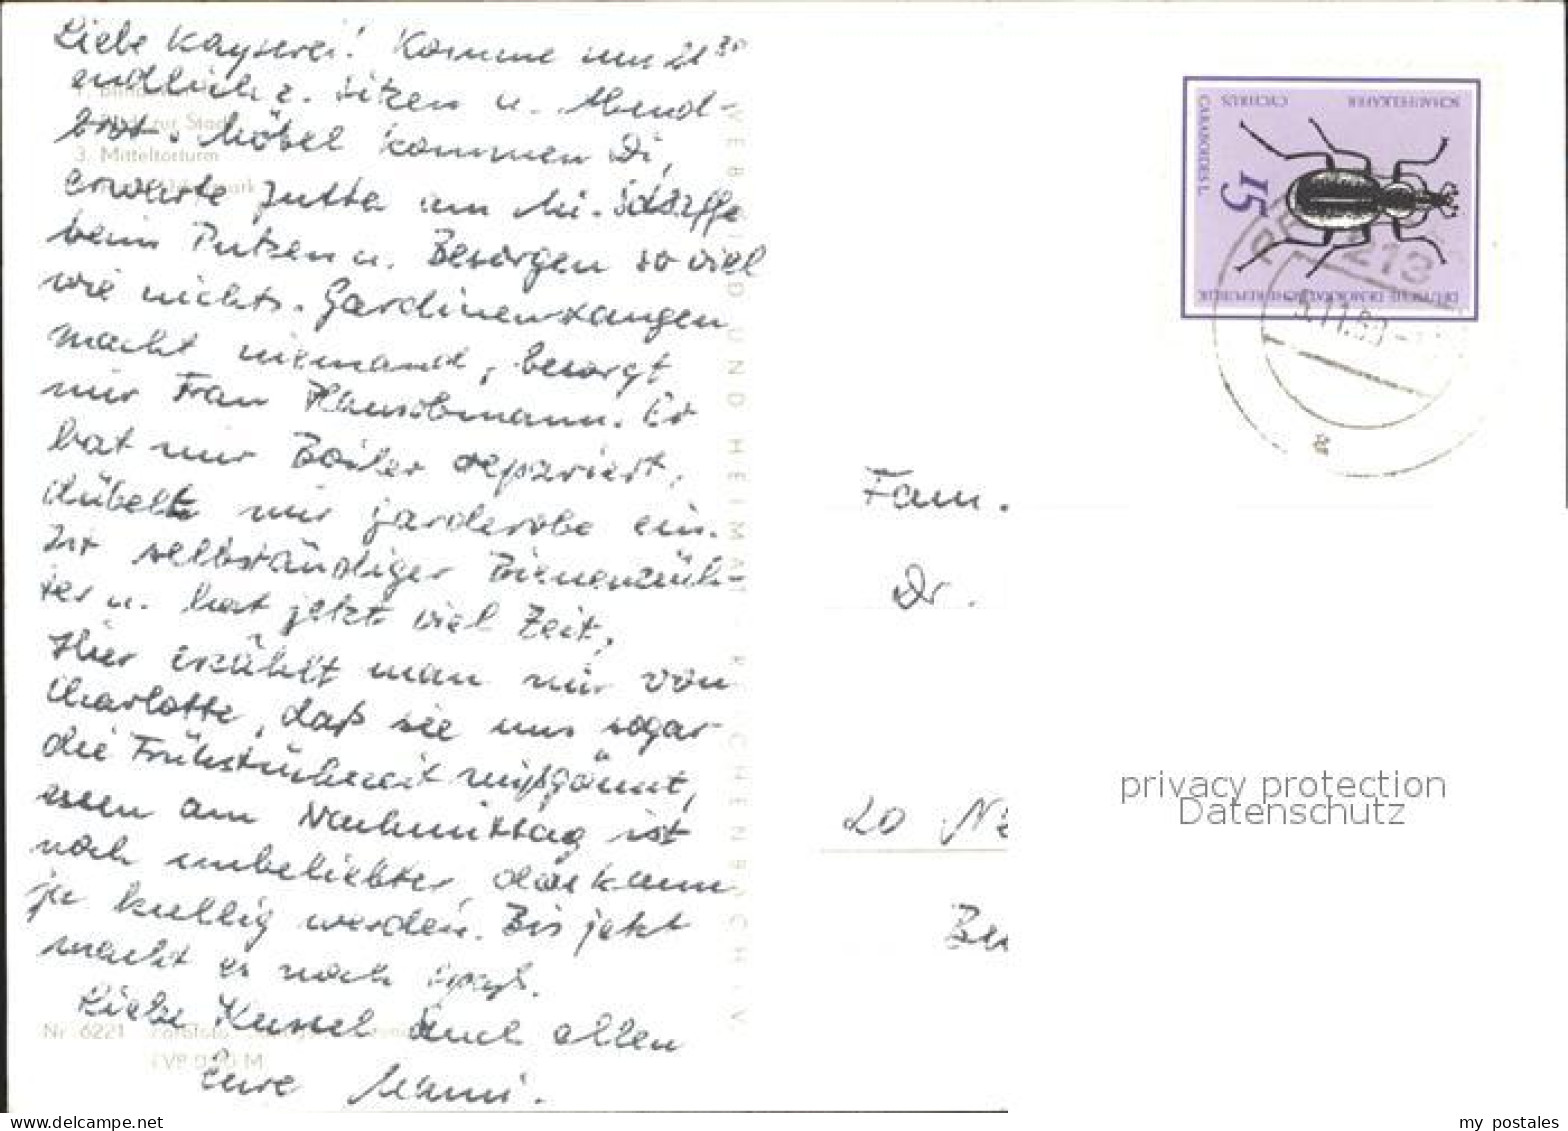 Liebe Kayserei! Komme um 21³⁰
endlich z. Sitzen u. Abend-
brot. Möbel kommen Di,
erwarte Jutta am Mi. Schaffe
beim Putzen u. Besorgen so viel
wie nichts. Gardinenstangen
macht niemand, besorgt
mir Frau
hat mir Boiler repariert,
dübelt mir Garderobe ein.
Ist selbständiger Bienenzüch-
ter u. hat jetzt viel Zeit.
Hier erzählt man mir von
Charlotte, daß sie uns sogar
die Frühstückszeit mißgönnt,
essen am Nachmittag ist
noch unbeliebter, das kann
ja kullig werden. Bis jetzt
macht es noch Spaß.
Liebe Kussel Euch allen
Eure Mimi.
3. Mitteltorturm
Nr. 6221 Farbfoto
EVP 0,20 M
BILD UND HEIMAT REICHENBACH I. V.
SCHAUFELKÄFER
CYCHRUS
CARABOIDES L.
15
DEUTSCHE DEMOKRATISCHE REPUBLIK
213
Fam.
Dr.
20 Ne
privacy protection
Datenschutz
www.delcampe.net
my_postales